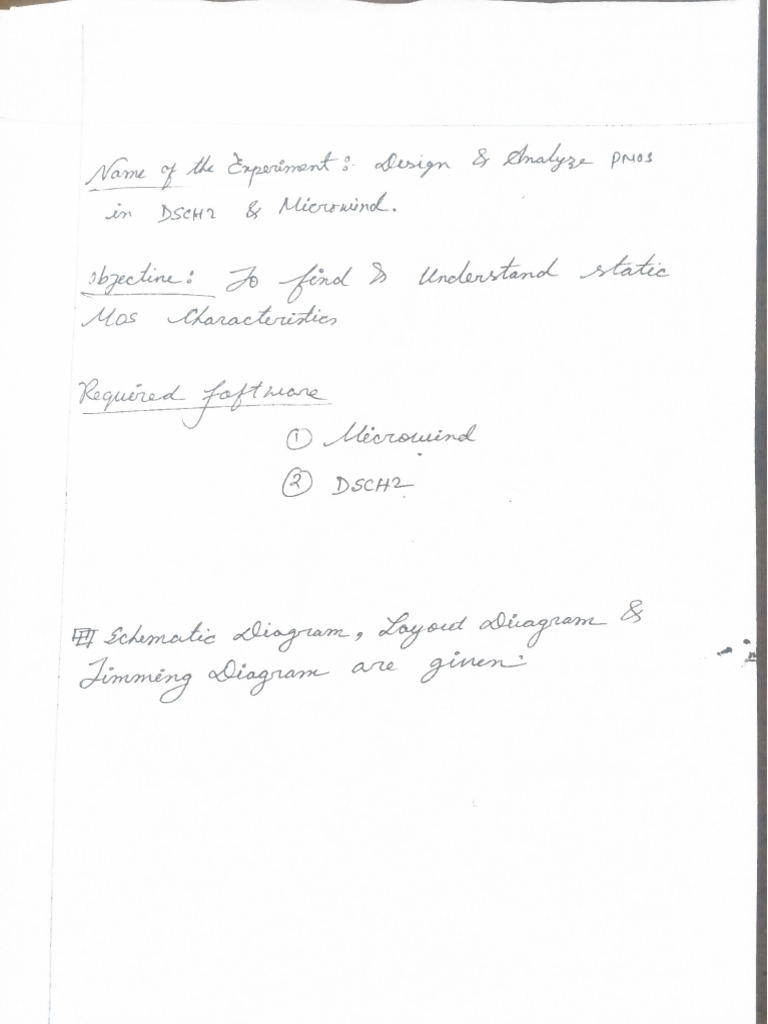 Name of the Experiment: Design & Analyze PMOS
in DSCH2 & Microwind.
Objective: To find & Understand static
MOS Characteristics
Required Software
① Microwind
② DSCH2
Schematic Diagram, Layout Diagram &
Timming Diagram are given: